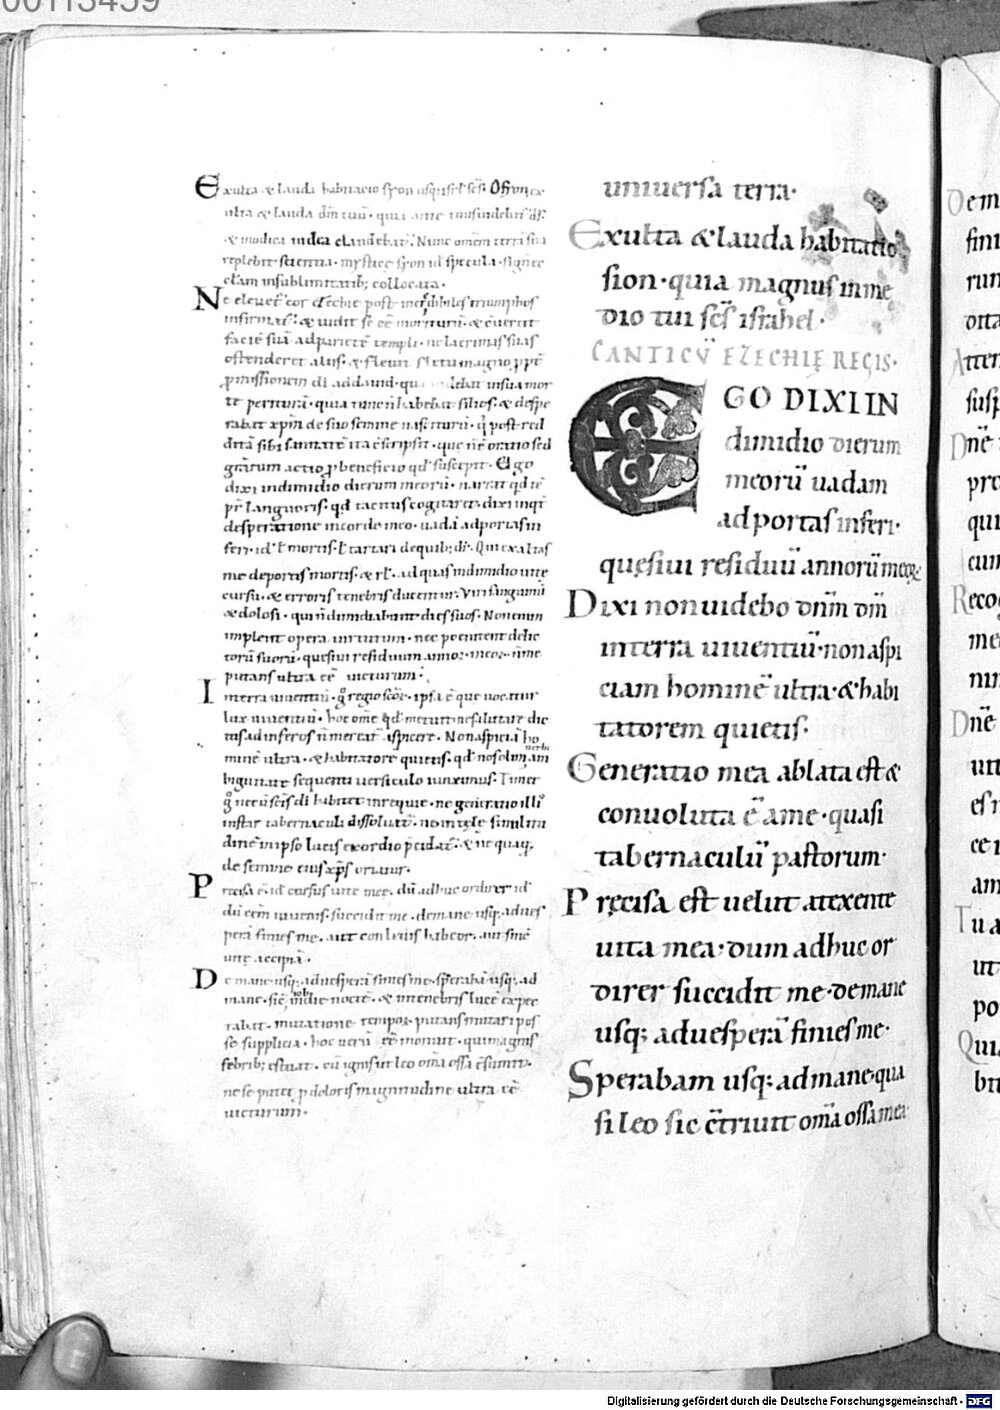 00113459
Exulta & lauda habitacio syon usq; isrł scs̄. O syon ex
ulta & lauda dm̄ tuū · quia ante
& modica iudea claudebat. Nunc omem terrā sua
replebit scientia · mystice syon id specula
ęcłam insublimitatib; collocata ·
Ne eleuet cor ezechie post incredibiles triumphos
infirmat · & uidit se eē moriturū · & cuertit
faciē suā adparietē templi · ne lacrimas suas
ostenderet aliis · & fleuit fletu magno ppt
pmissionem di addauid · qua uidebat insua mor
te periturā · quia
rabat xpm̄ de suo semine nasciturū · q post red
ditā sibi sanitatē ita escripsit · que nē oratio sed
grarum actio p beneficio qd suscepit · Ego
dixi indimidio dierum meorū · narrat qd tē
pr languoris · qd tacitus cogitaret · dixi inqt
desperatione incorde meo · uadā adportas in
feri · id ł mortis · ł tartari dequib; dr · Qui exaltas
me deportis mortis · & rł · ad quas indimidio uitę
cursu · & erroris tenebris ducentur · Viri sanguinū
& dolosi · qui n dimidiabunt dies suos · Non enim
implent opera uirtutum · nec poenitent delic
torū suorū · quesiui residuum annoꝝ · meoꝝ · n me
putans ultra eē uicturum ·
In terra uiuentiū · g regio scoꝝ · ipsa ē que uocatur
lux uiuentiū · hoc ome qd metuit ne salutare dic
tus ad inferos n mereat aspicere · Non aspiciā ho
uerbi
minē ultra · & habitatorē quietis · qd nos ob
biguitate sequenti uersiculo iunximus · Timet
g ne cū scis di habitet inrequie · ne generatio illi
instar tabernaculi dissoluat · ne in telę simili tu
dinē in ipso lucis exordio p̄cidat · & ne quaq;
de semine eius xp̄s oriatur ·
Precisa ē · id cursus uite mee · dū adhuc ordirer id
dū eēm iuuenis · succidit me · demane usq; ad ues
perā finies me · aut con leuis habeor · aut sine
uitę accipiā ·
De mane usq; ad uesperā finies me · sperabā usq; ad
iob
mane · sic indie nocte · & intenebris lucē expec
tabat · mutatione tempoꝝ · putans mutari pos
se supplicia · hoc uerū eē monuit · qui magnis
febrib; estuat · cū ignis ut leo omā ossa c̄sumit ·
ne se putet p doloris magnitudine ultra eē
uicturum ·
uniuersa terra·
Exulta & lauda habitatio
sion · quia magnus inme
dio tui scs̄ israhel ·
CANTICV̄ EZECHIĘ REGIS ·
EGO DIXI IN
dimidio dierum
meorū uadam
ad portas inferi ·
quęsiui residuū annorū meoꝝ
Dixi non uidebo dnm̄ dm̄
interra uiuentiū · non aspi
ciam hominē ultra · & habi
tatorem quietis ·
Generatio mea ablata est &
conuoluta ē ame · quasi
tabernaculū pastorum ·
Pręcisa est uelut atexente
uita mea · dum adhuc or
direr succidit me · demane
usq; aduesperā finies me ·
Sperabam usq; ad mane · qua
si leo sic c̄triuit omā ossa mea
Dem
fini
rum
otta
Atten
susp
Dnē
pro
qui
cum
Recog
me
nim
Dnē
uit
am
Tu a
ut
po
Quia
bit
Digitalisierung gefördert durch die Deutsche Forschungsgemeinschaft - DFG